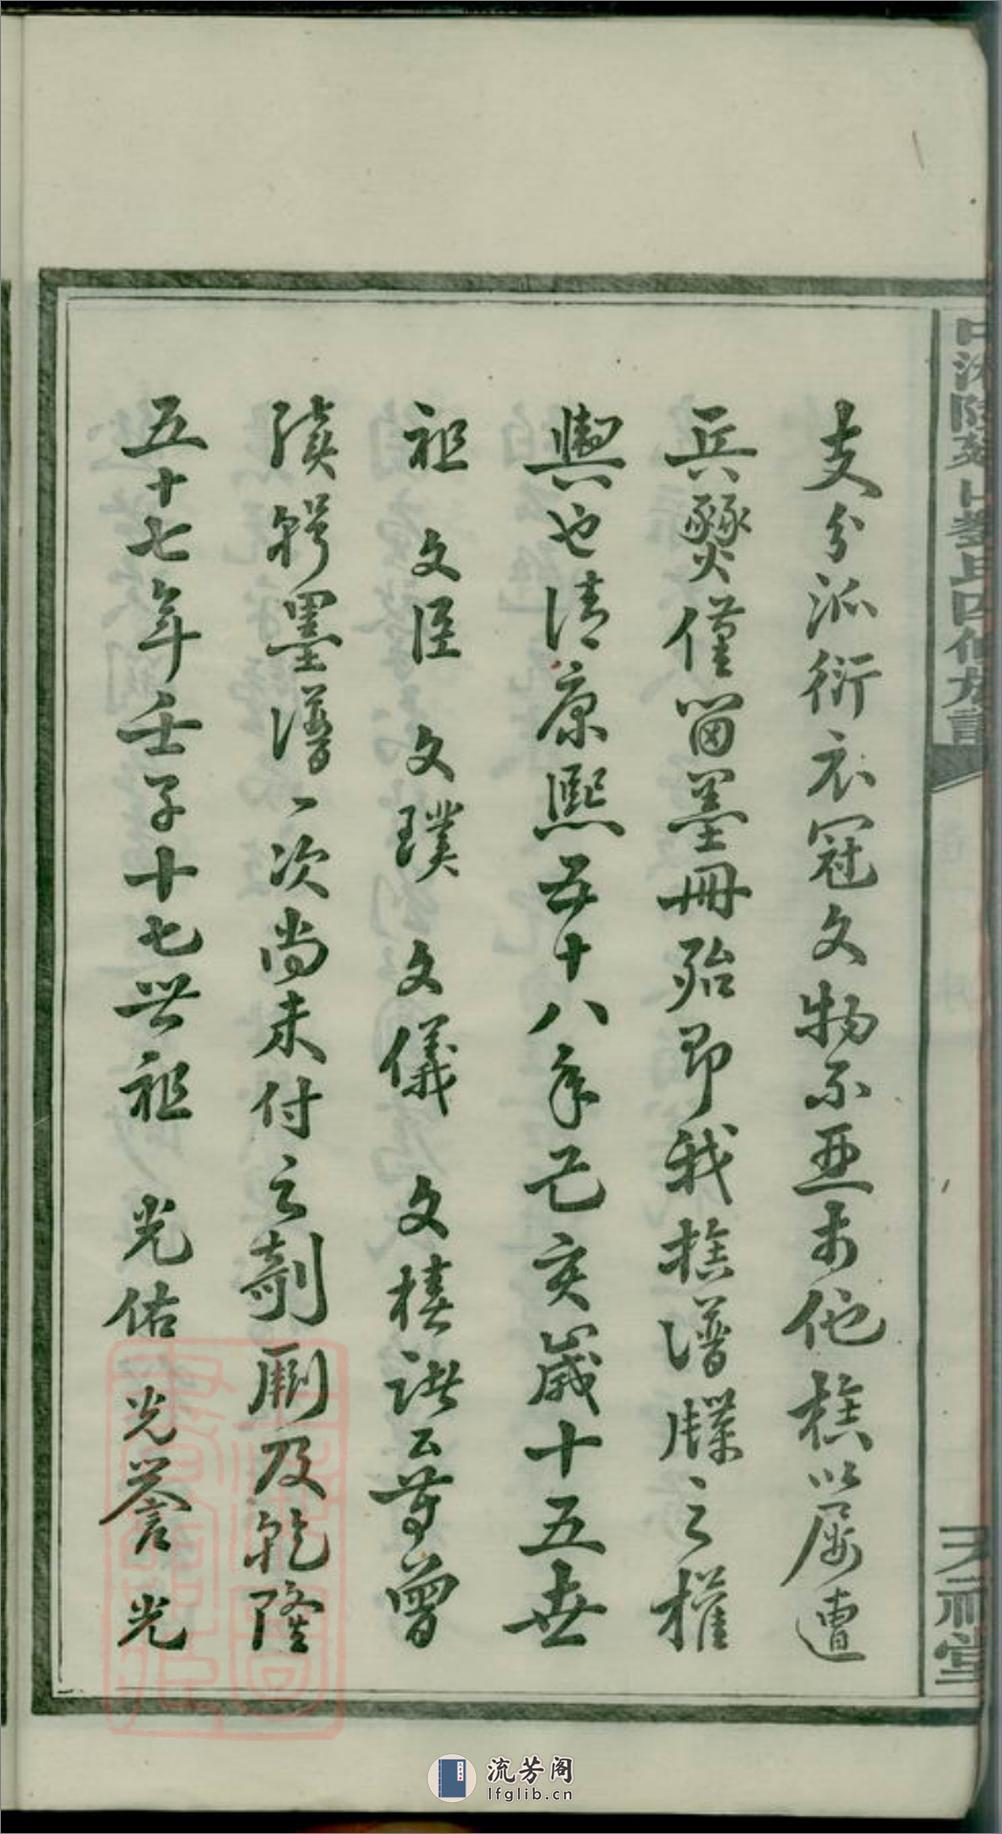 支分派衍衣冠文物不亚於他族以屡遭
兵燹僅留墨冊殆即我族譜牒之權
輿也清康熙五十八年己亥歲十五世
祖 文臣 文璞 文儀 文椿諸公尊曾
續修墨譜一次尚未付之剞劂及乾隆
五十七年壬子十七世祖 光佑 光譽 光
氏四修族譜
天禄堂
流芳阁
lfglib.cn